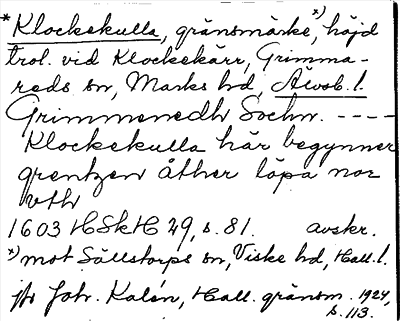 * Klockekulla, gränsmärke, x) höjd
trol. vid Klockekärr, Grimma-
reds sn, Marks hd, Älvsb. l.
Grimmeredh Sochn. ----
Klockekulla här begynner
grentzen åther löpa nor
vth
1603 HSkH 29, s. 81. avskr.
x) mot Sällstorps sn, Viske hd, Hall. l.
Joh. Kalén, Hall. gränsm. 1924,
s. 113.